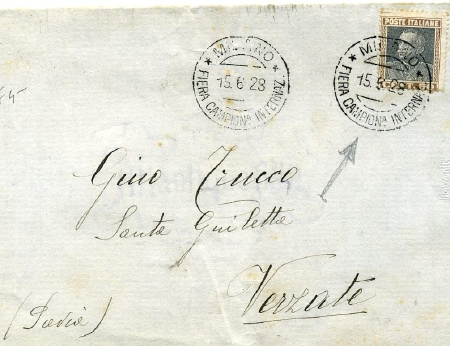 POSTE ITALIANE
MILANO
15.6 28
FIERA CAMPIONA INTERNAZ.
MILANO
15.6 28
FIERA CAMPIONA INTERNAZ.
Gino Trucco
Santa Guiletta
Verzate
(Pavia)